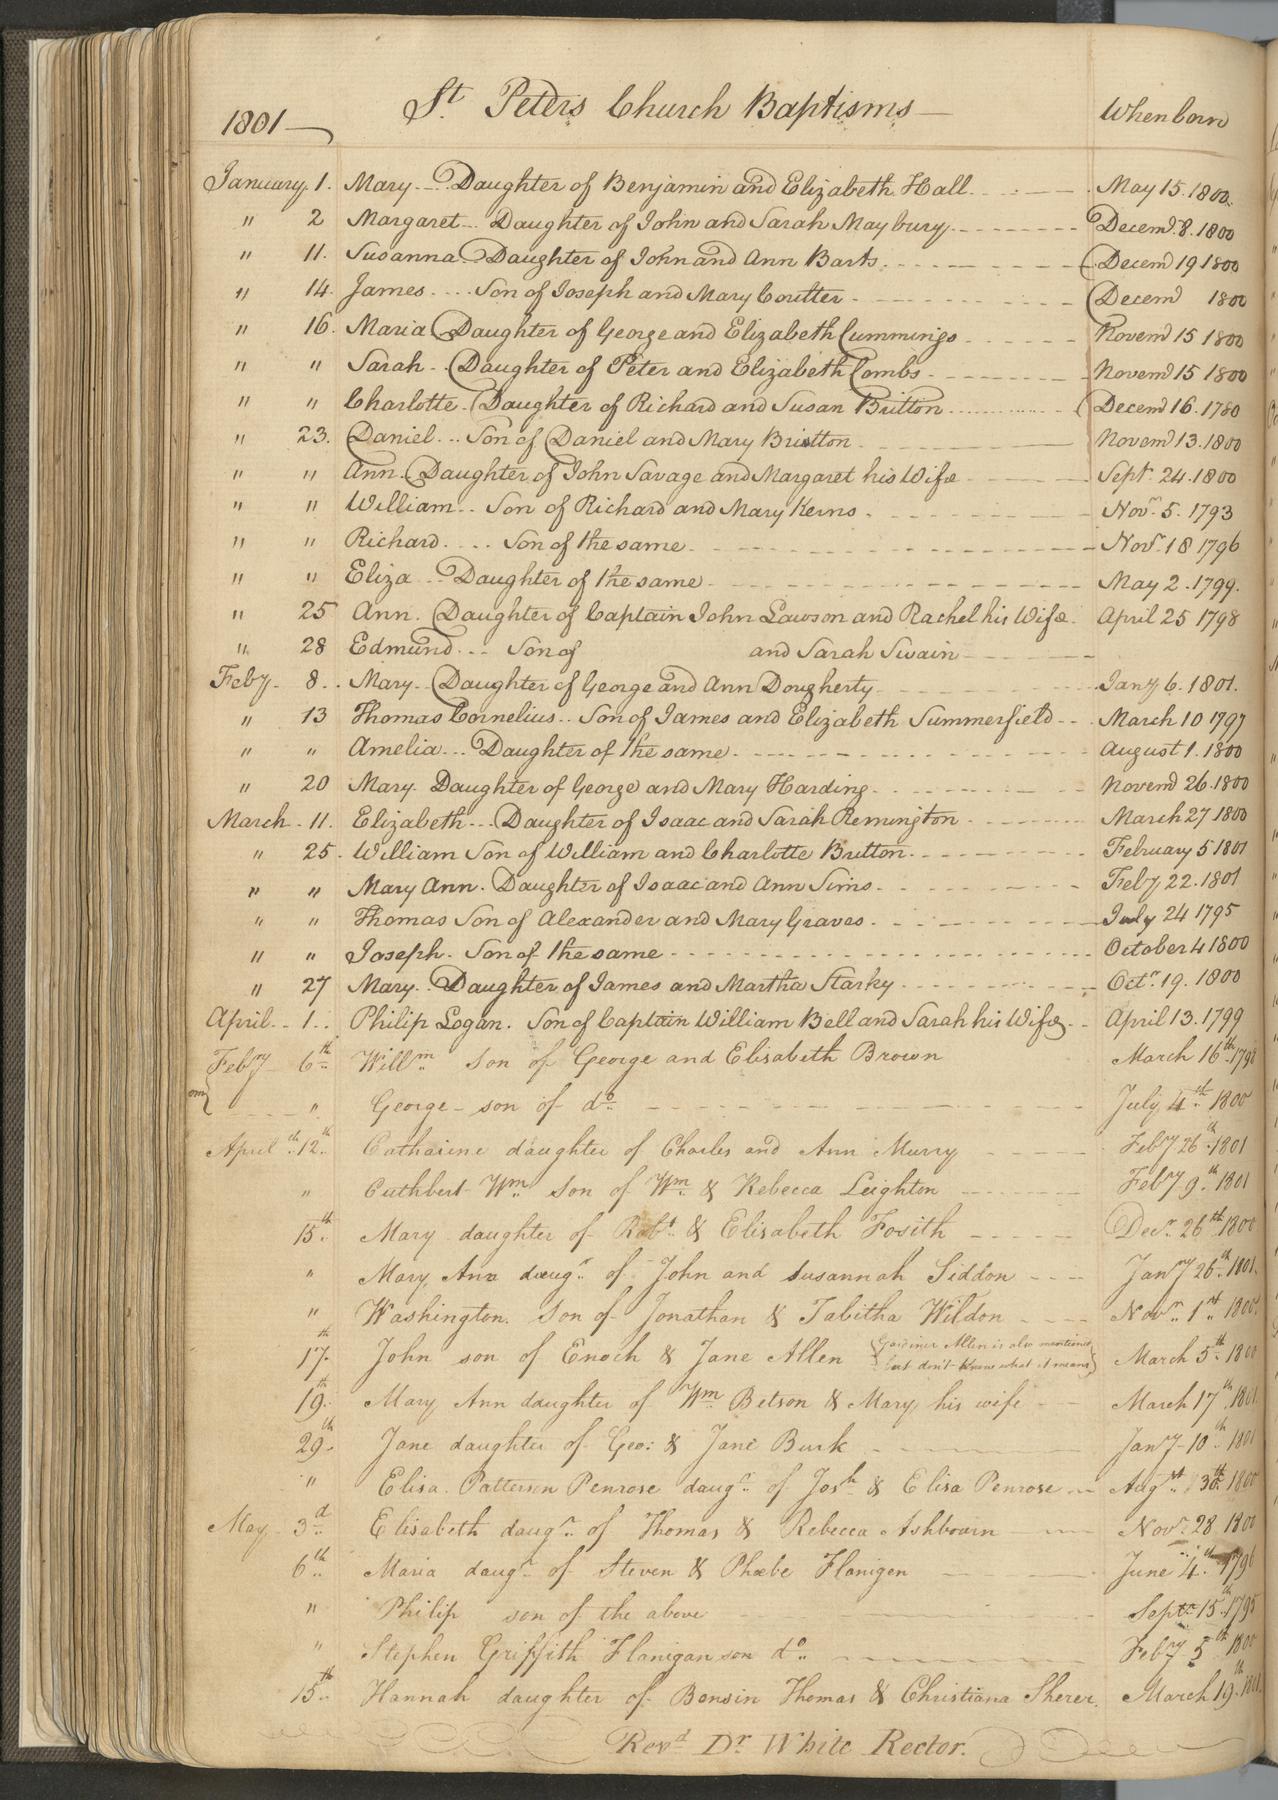 1801 St. Peters Church Baptisms When born
January. 1. Mary Daughter of Benjamin and Elizabeth Hall May 15. 1800.
" 2 Margaret Daughter of John and Sarah Maybury Decemr. 8. 1800
" 11. Susanna Daughter of John and Ann Barts Decemr 19 1800
" 14. James Son of Joseph and Mary Coutter Decemr 1800
" 16. Maria Daughter of George and Elizabeth Cummings Novemr 15 1800
" " Sarah Daughter of Peter and Elizabeth Combs Novemr 15 1800
" " Charlotte Daughter of Richard and Susan Britton Decemr 16. 1780
" 23. Daniel Son of Daniel and Mary Bristton Novemr 13. 1800
" " Ann Daughter of John Savage and Margaret his Wife Septr. 24. 1800
" " William Son of Richard and Mary Kerns Novr. 5. 1793
" " Richard Son of the same Novr. 18 1796
" " Eliza Daughter of the same May 2. 1799.
" 25 Ann Daughter of Captain John Lawson and Rachel his Wife April 25 1798
" 28 Edmund Son of and Sarah Swain
Feby. 8. Mary Daughter of George and Ann Dougherty Jany 6. 1801.
" 13 Thomas Cornelius Son of James and Elizabeth Summerfield March 10 1797
" " Amelia Daughter of the same August 1. 1800
" 20 Mary Daughter of George and Mary Harding Novemr 26. 1800
March 11. Elizabeth Daughter of Isaac and Sarah Remington March 27 1800
" 25. William Son of William and Charlotte Britton February 5 1801
" " Mary Ann. Daughter of Isaac and Ann Sims Feby 22. 1801
" " Thomas Son of Alexander and Mary Graves July 24 1795
" " Joseph Son of the same October 4 1800
" 27 Mary Daughter of James and Martha Starky Octr. 19. 1800
April 1. Philip Logan. Son of Captain William Bell and Sarah his Wife April 13. 1799
Febry 6th Willm. son of George and Elisabeth Brown March 16th 1798
om " George son of do July 4th 1800
April 12th Catharine daughter of Charles and Ann Murry Feby 26th 1801
" Cuthbert Wm. Son of Wm. & Rebecca Leighton Feby 9th 1801
15th Mary daughter of Robt. & Elisabeth Fosith Decr. 26th 1800
" Mary Ann daugr. of John and Susannah Siddon Jany 26th 1801.
" Washington. Son of Jonathan & Tabitha Wildon Novr. 1st 1800.
17th John son of Enoch & Jane Allen {Gardiner Allen is also mentioned but don't know what it means} March 5th 1800
19th Mary Ann daughter of Wm. Betson & Mary his wife March 17th 1801
29th Jane daughter of Geo: & Jane Burk Jany 10th 1801
" Elisa Patterson Penrose daugr. of Josh. & Elisa Penrose Augst 30th 1800
May 3d Elisabeth daugr. of Thomas & Rebecca Ashbourn Novr. 28 1800
6th Maria daugr. of Steven & Phœbe Flanigen June 4th 1796
" Philip son of the above Septr 15th 1795
" Stephen Griffith Flanigan son do. Feby 5th 1800
15th Hannah daughter of Bensin Thomas & Christiana Sherer. March 19th 1801.
Revd. Dr. White Rector.